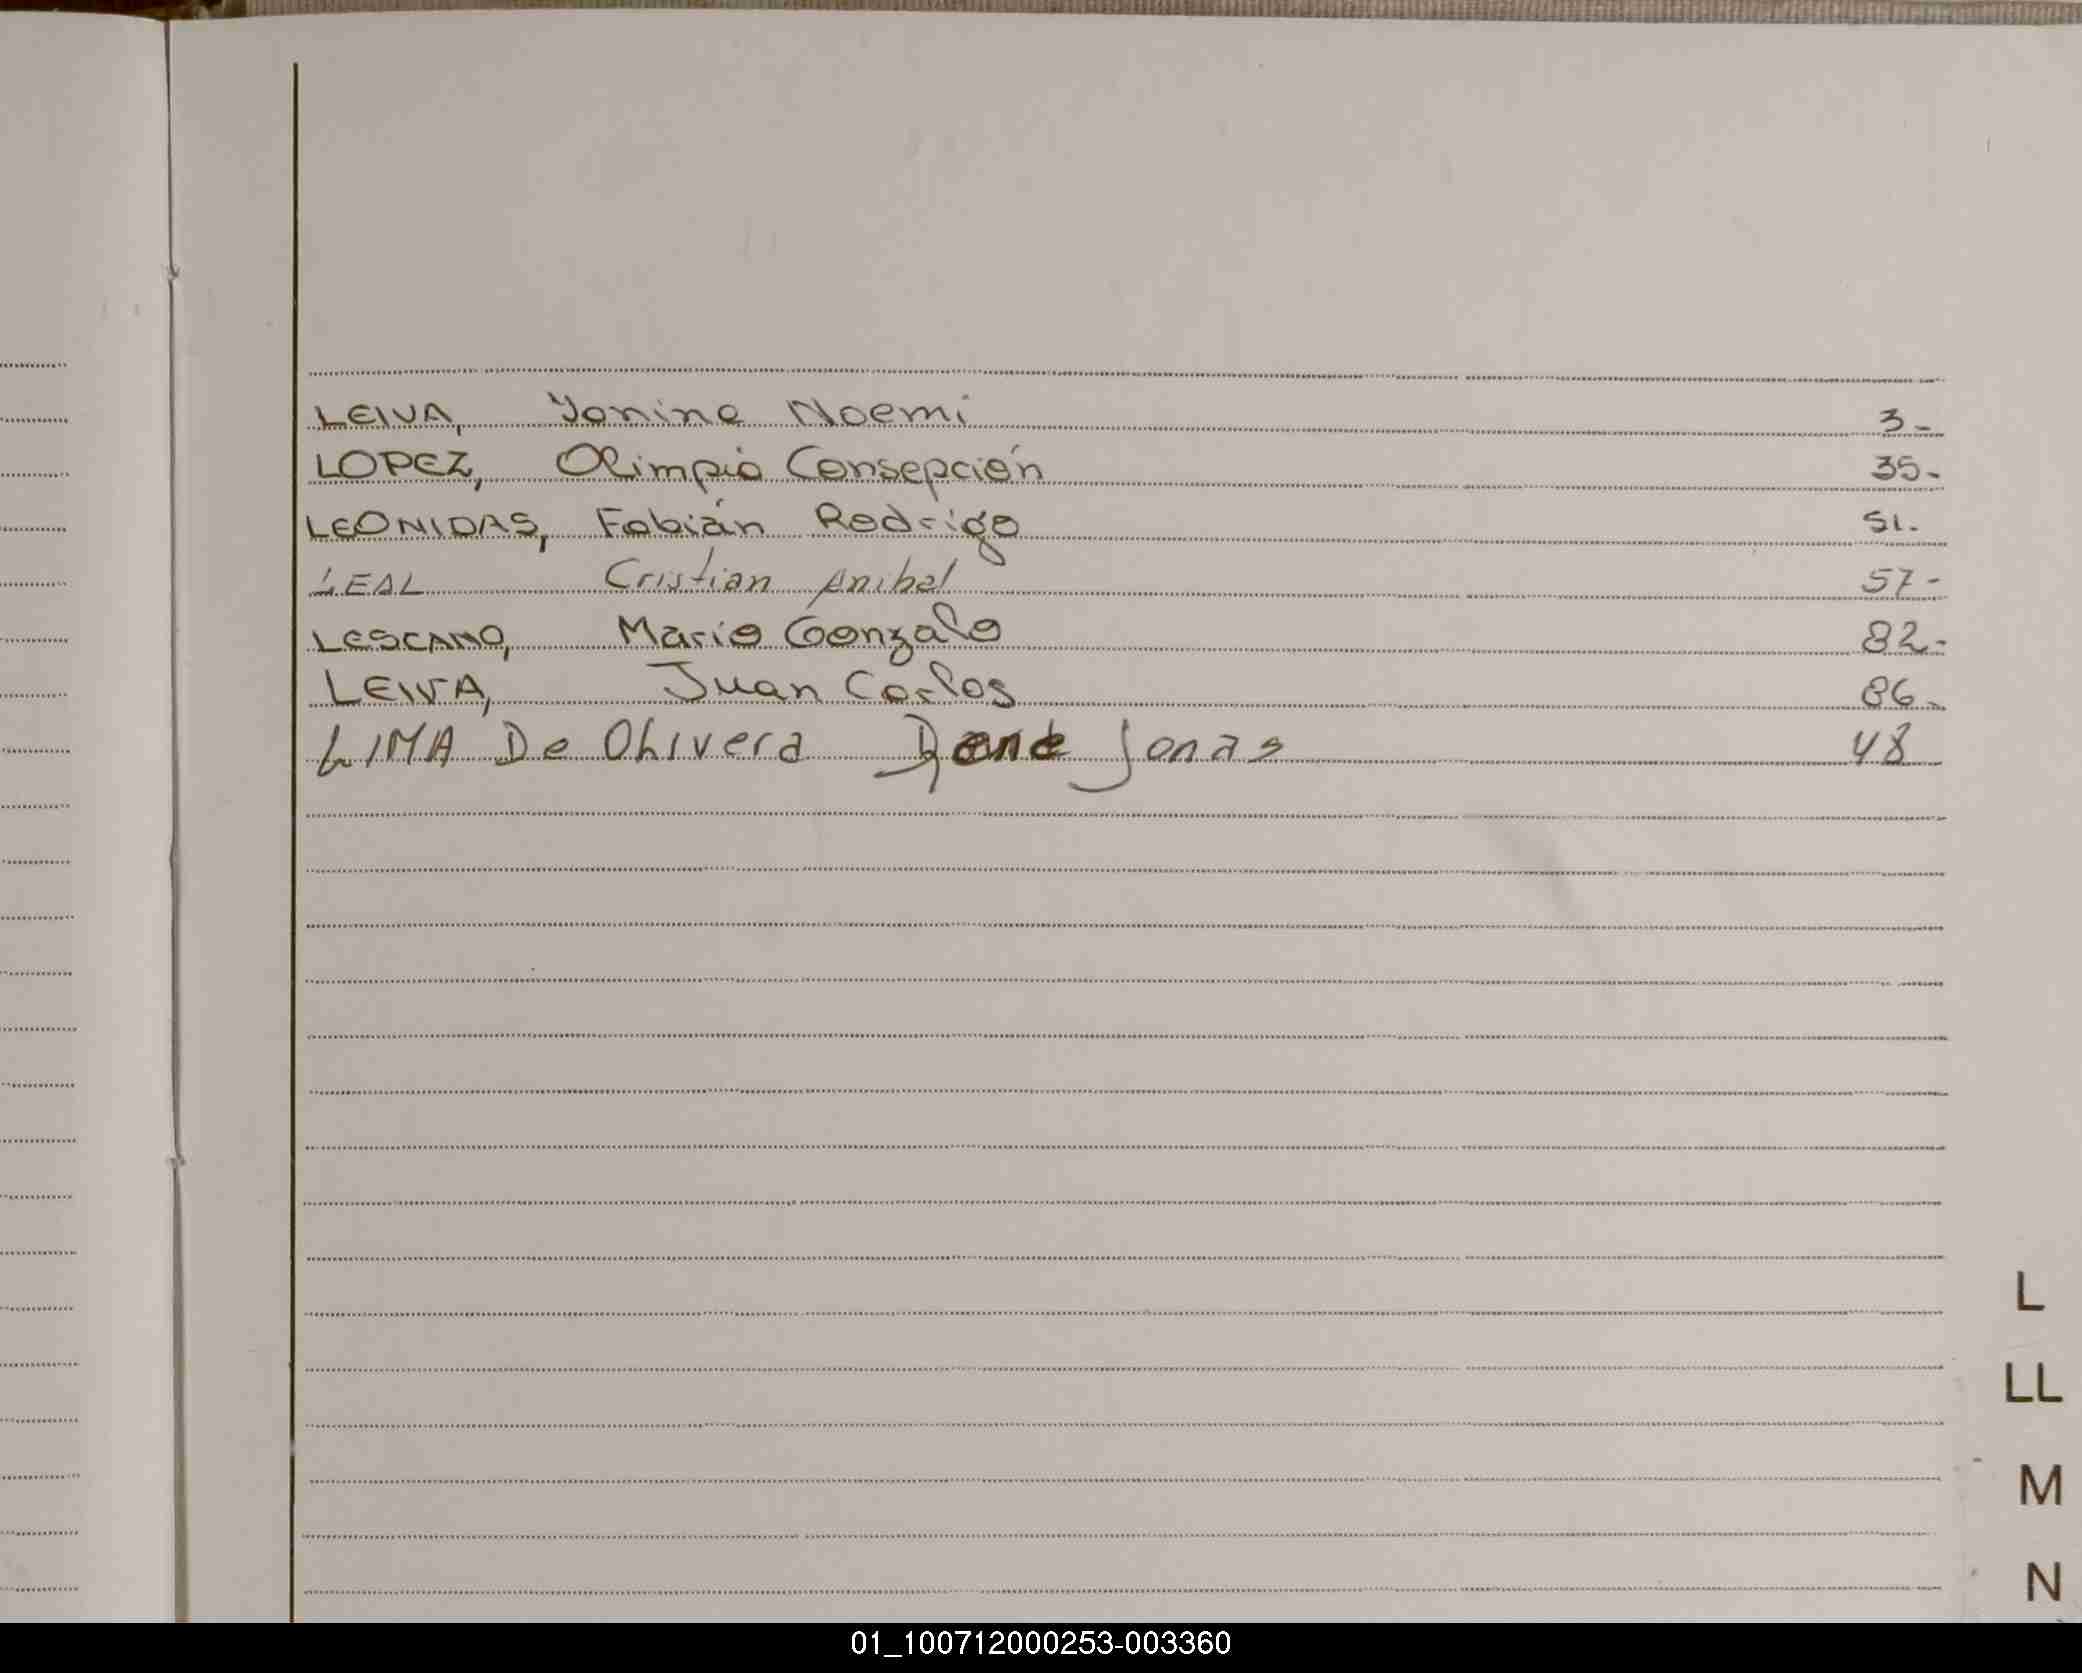 LEIVA, Yonina Noemi 3-
LOPEZ, Olimpia Consepción 35-
LEONIDAS, Fabián Rodrigo 51.
LEAL Cristian Anibal 57-
LESCANO, Mario Gonzalo 82-
LEIVA, Juan Carlos 86-
LIMA De Olivera Jonas 48
L
LL
M
N
01_100712000253-003360